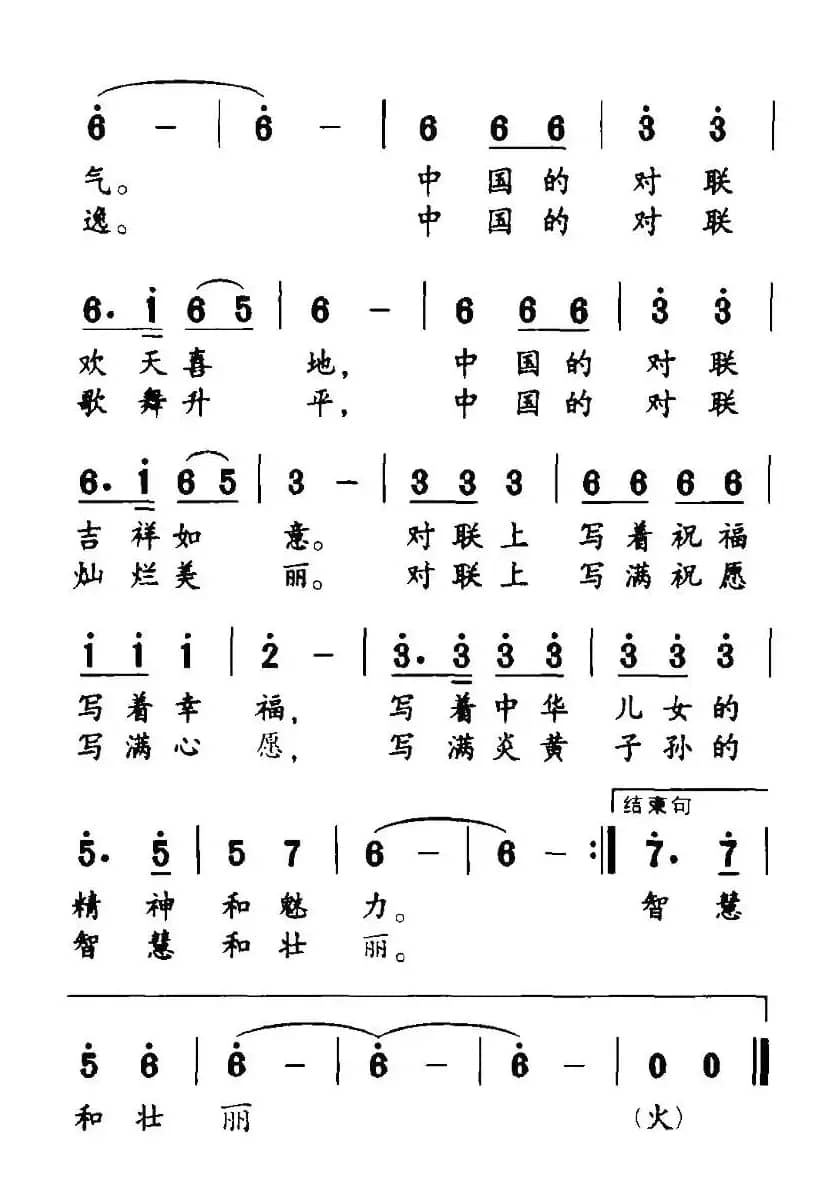 6 - | 6 - | 6 6 6 | 3 3 |
气。 中 国 的 对 联
逸。 中 国 的 对 联
6. 1 6 5 | 6 - | 6 6 6 | 3 3 |
欢 天 喜 地, 中 国 的 对 联
歌 舞 升 平, 中 国 的 对 联
6. 1 6 5 | 3 - | 3 3 3 | 6 6 6 6 |
吉 祥 如 意。 对 联 上 写 着 祝 福
灿 烂 美 丽。 对 联 上 写 满 祝 愿
1 1 1 | 2 - | 3. 3 3 3 | 3 3 3 |
写 着 幸 福, 写 着 中 华 儿 女 的
写 满 心 愿, 写 满 炎 黄 子 孙 的
结束句
5. 5 | 5 7 | 6 - | 6 - :| 7. 7 |
精 神 和 魅 力。 智 慧
智 慧 和 壮 丽。
5 6 | 6 - | 6 - | 6 - | 0 0 ‖
和 壮 丽 (火)